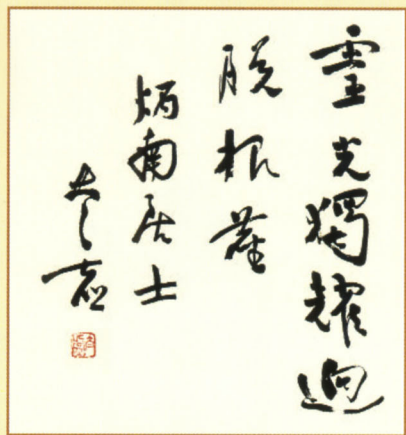 靈光獨耀迥
脫根塵
炳南居士
太虛